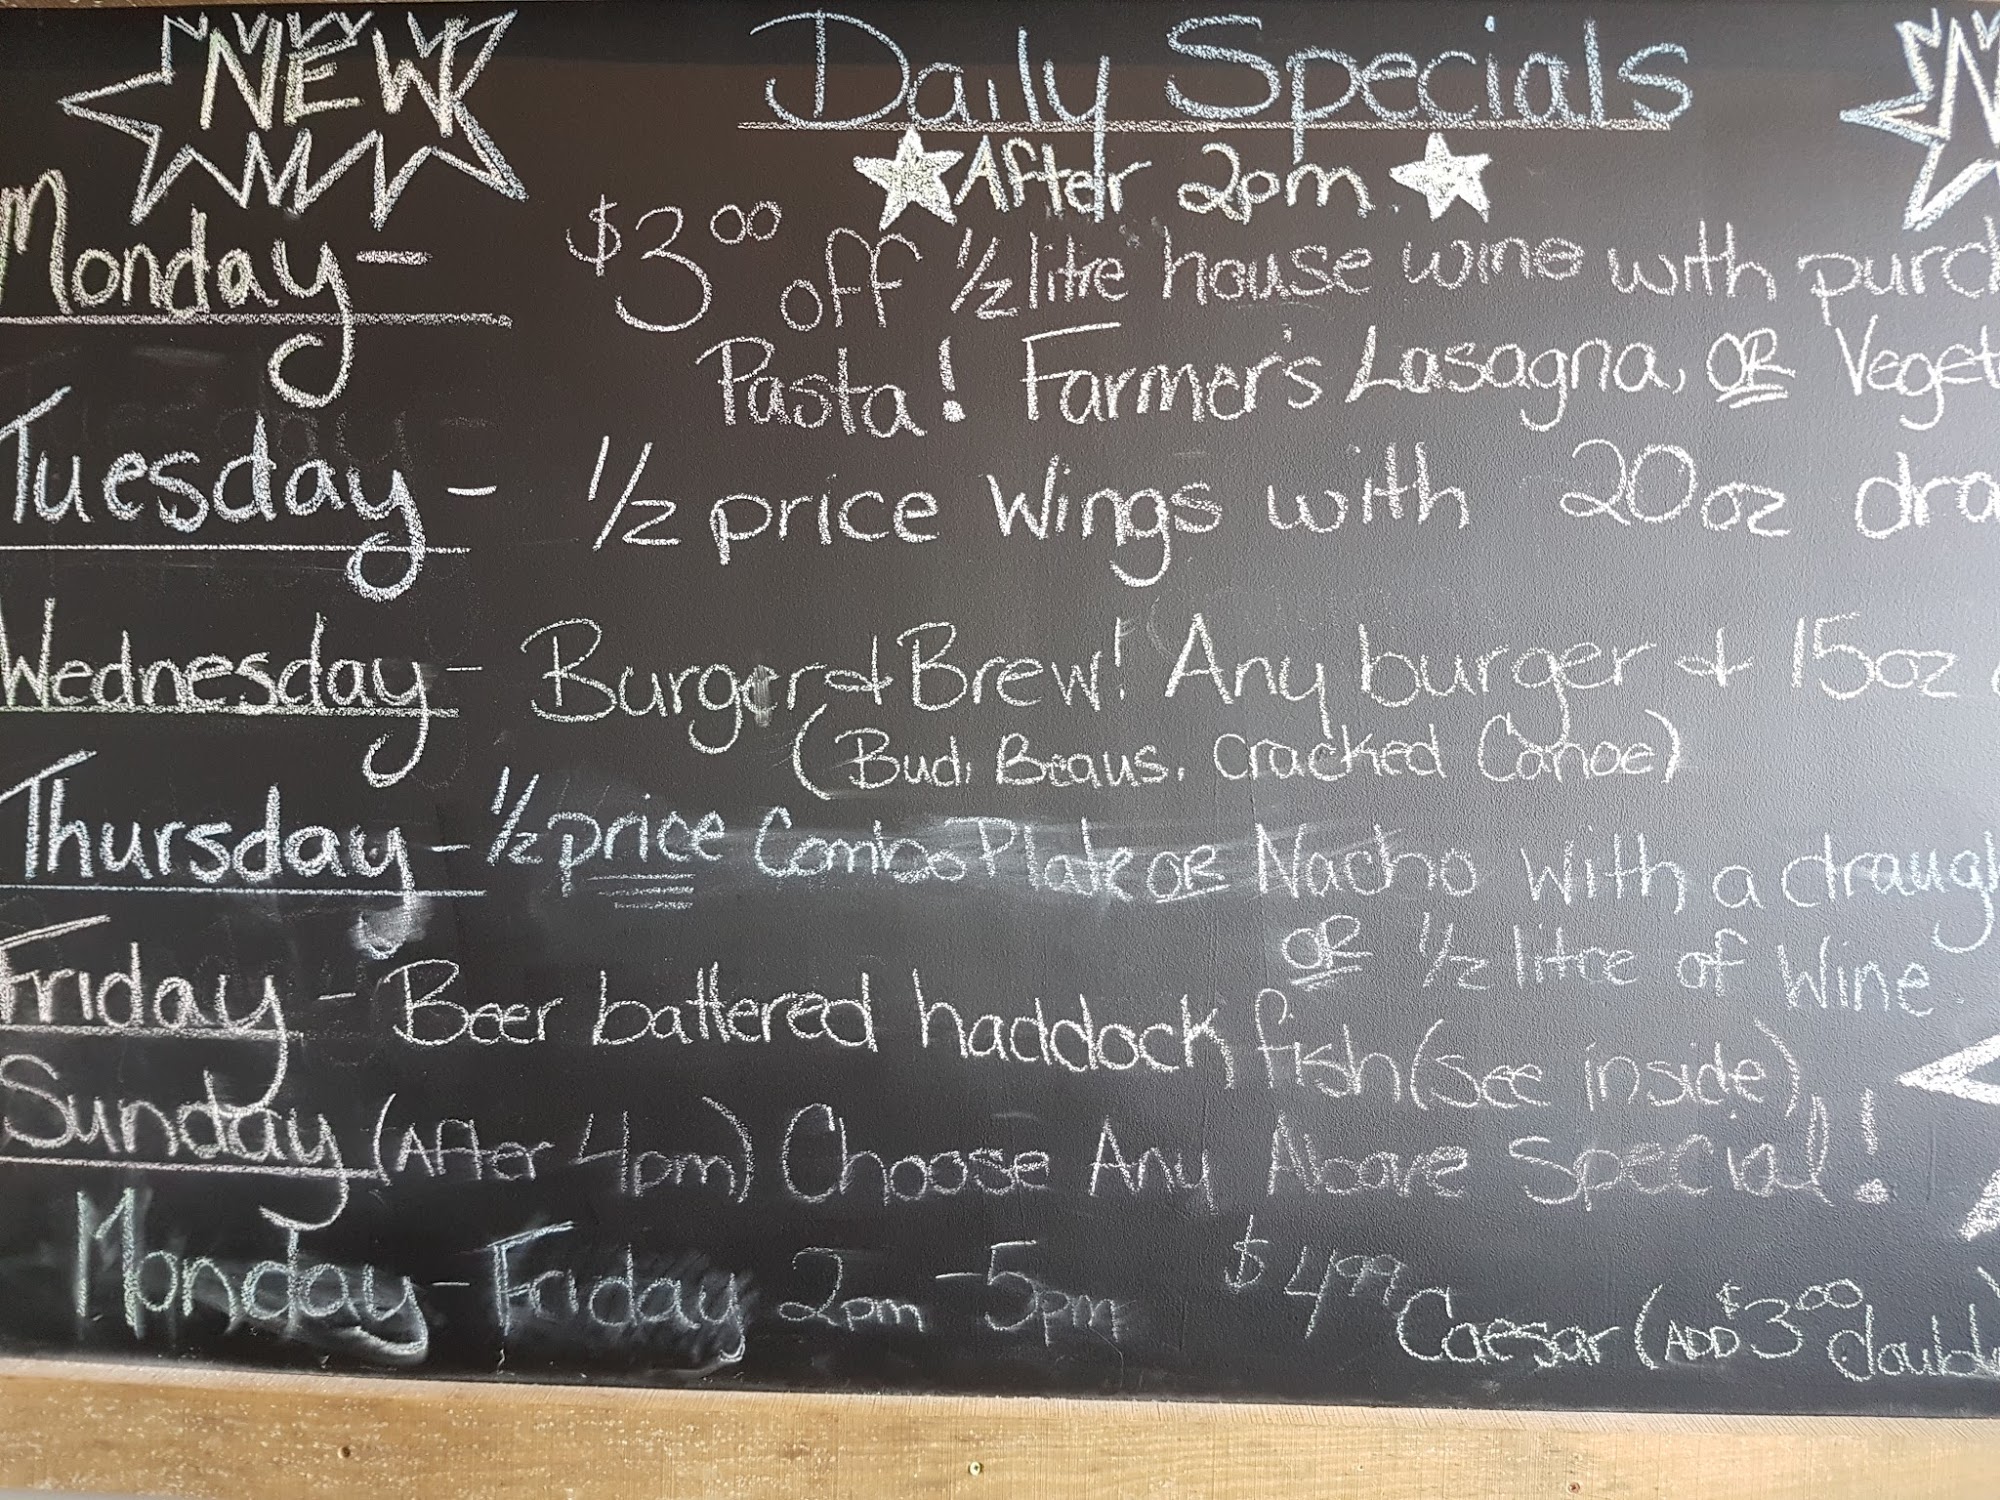 NEW Daily Specials N
After 2pm
Monday - $3.00 off 1/2 litre house wine with purch
Pasta! Farmer's Lasagna, OR Veget
Tuesday - 1/2 price Wings with 20oz dra
Wednesday - Burger & Brew! Any burger & 15oz
(Bud, Beaus, Cracked Canoe)
Thursday - 1/2 price Combo Plate OR Nacho with a draugh
OR 1/2 litre of Wine
Friday - Beer battered haddock fish (see inside)
Sunday (After 4pm) Choose Any Above Special!
Monday - Friday 2pm - 5pm $4.99 Caesar (ADD $3.00 double)